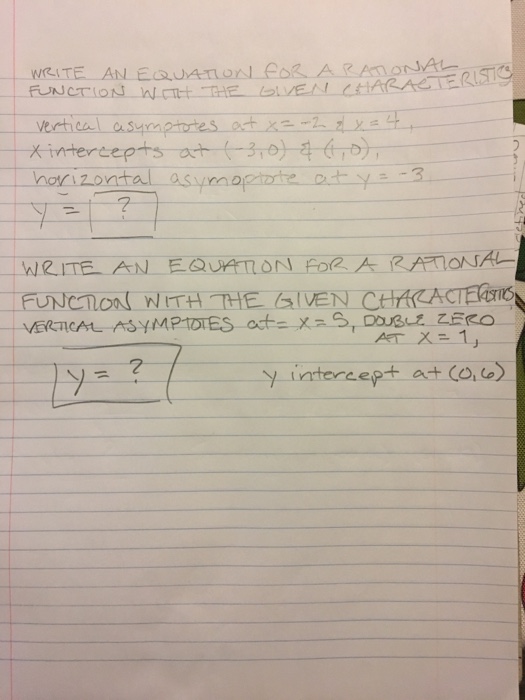 WRITE AN EQUATION FOR A RATIONAL
FUNCTION WITH THE GIVEN CHARACTERISTICS
vertical asymptotes at x = -2 & x = 4,
x intercepts at (-3,0) & (1,0),
horizontal asymoptote at y = -3
y = ?
WRITE AN EQUATION FOR A RATIONAL
FUNCTION WITH THE GIVEN CHARACTERISTICS
VERTICAL ASYMPTOTES at = x = 5, DOUBLE ZERO
AT X = 1,
y = ? y intercept at (0,6)